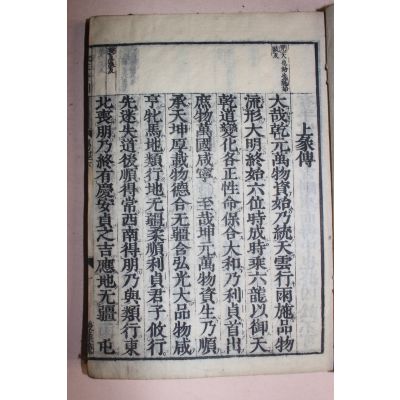 上彖傳
大哉乾元萬物資始乃統天雲行雨施品物
流形大明終始六位時成時乘六龍以御天
乾道變化各正性命保合大和乃利貞首出
庶物萬國咸寧 至哉坤元萬物資生乃順
承天坤厚載物德合无疆含弘光大品物咸
亨牝馬地類行地无疆柔順利貞君子攸行
先迷失道後順得常西南得朋乃與類行東
北喪朋乃終有慶安貞之吉應地无疆 屯